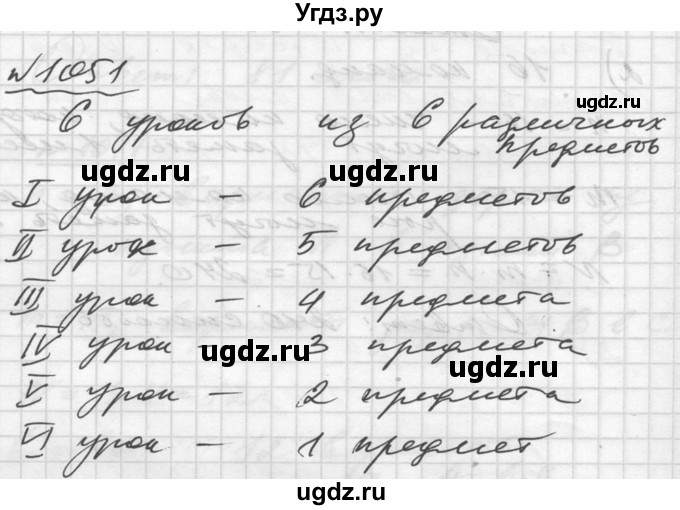 Угдз.ру
№1051
ugdz.ru
6 уроков из 6 различных
предметов
ugdz.ru ugdz.ru
I урок – 6 предметов
II урок – 5 предметов
III урок – 4 предмета
IV урок – 3 предмета
ugdz.ru ugdz.ru
V урок – 2 предмета
VI урок – 1 предмет
ugdz.ru